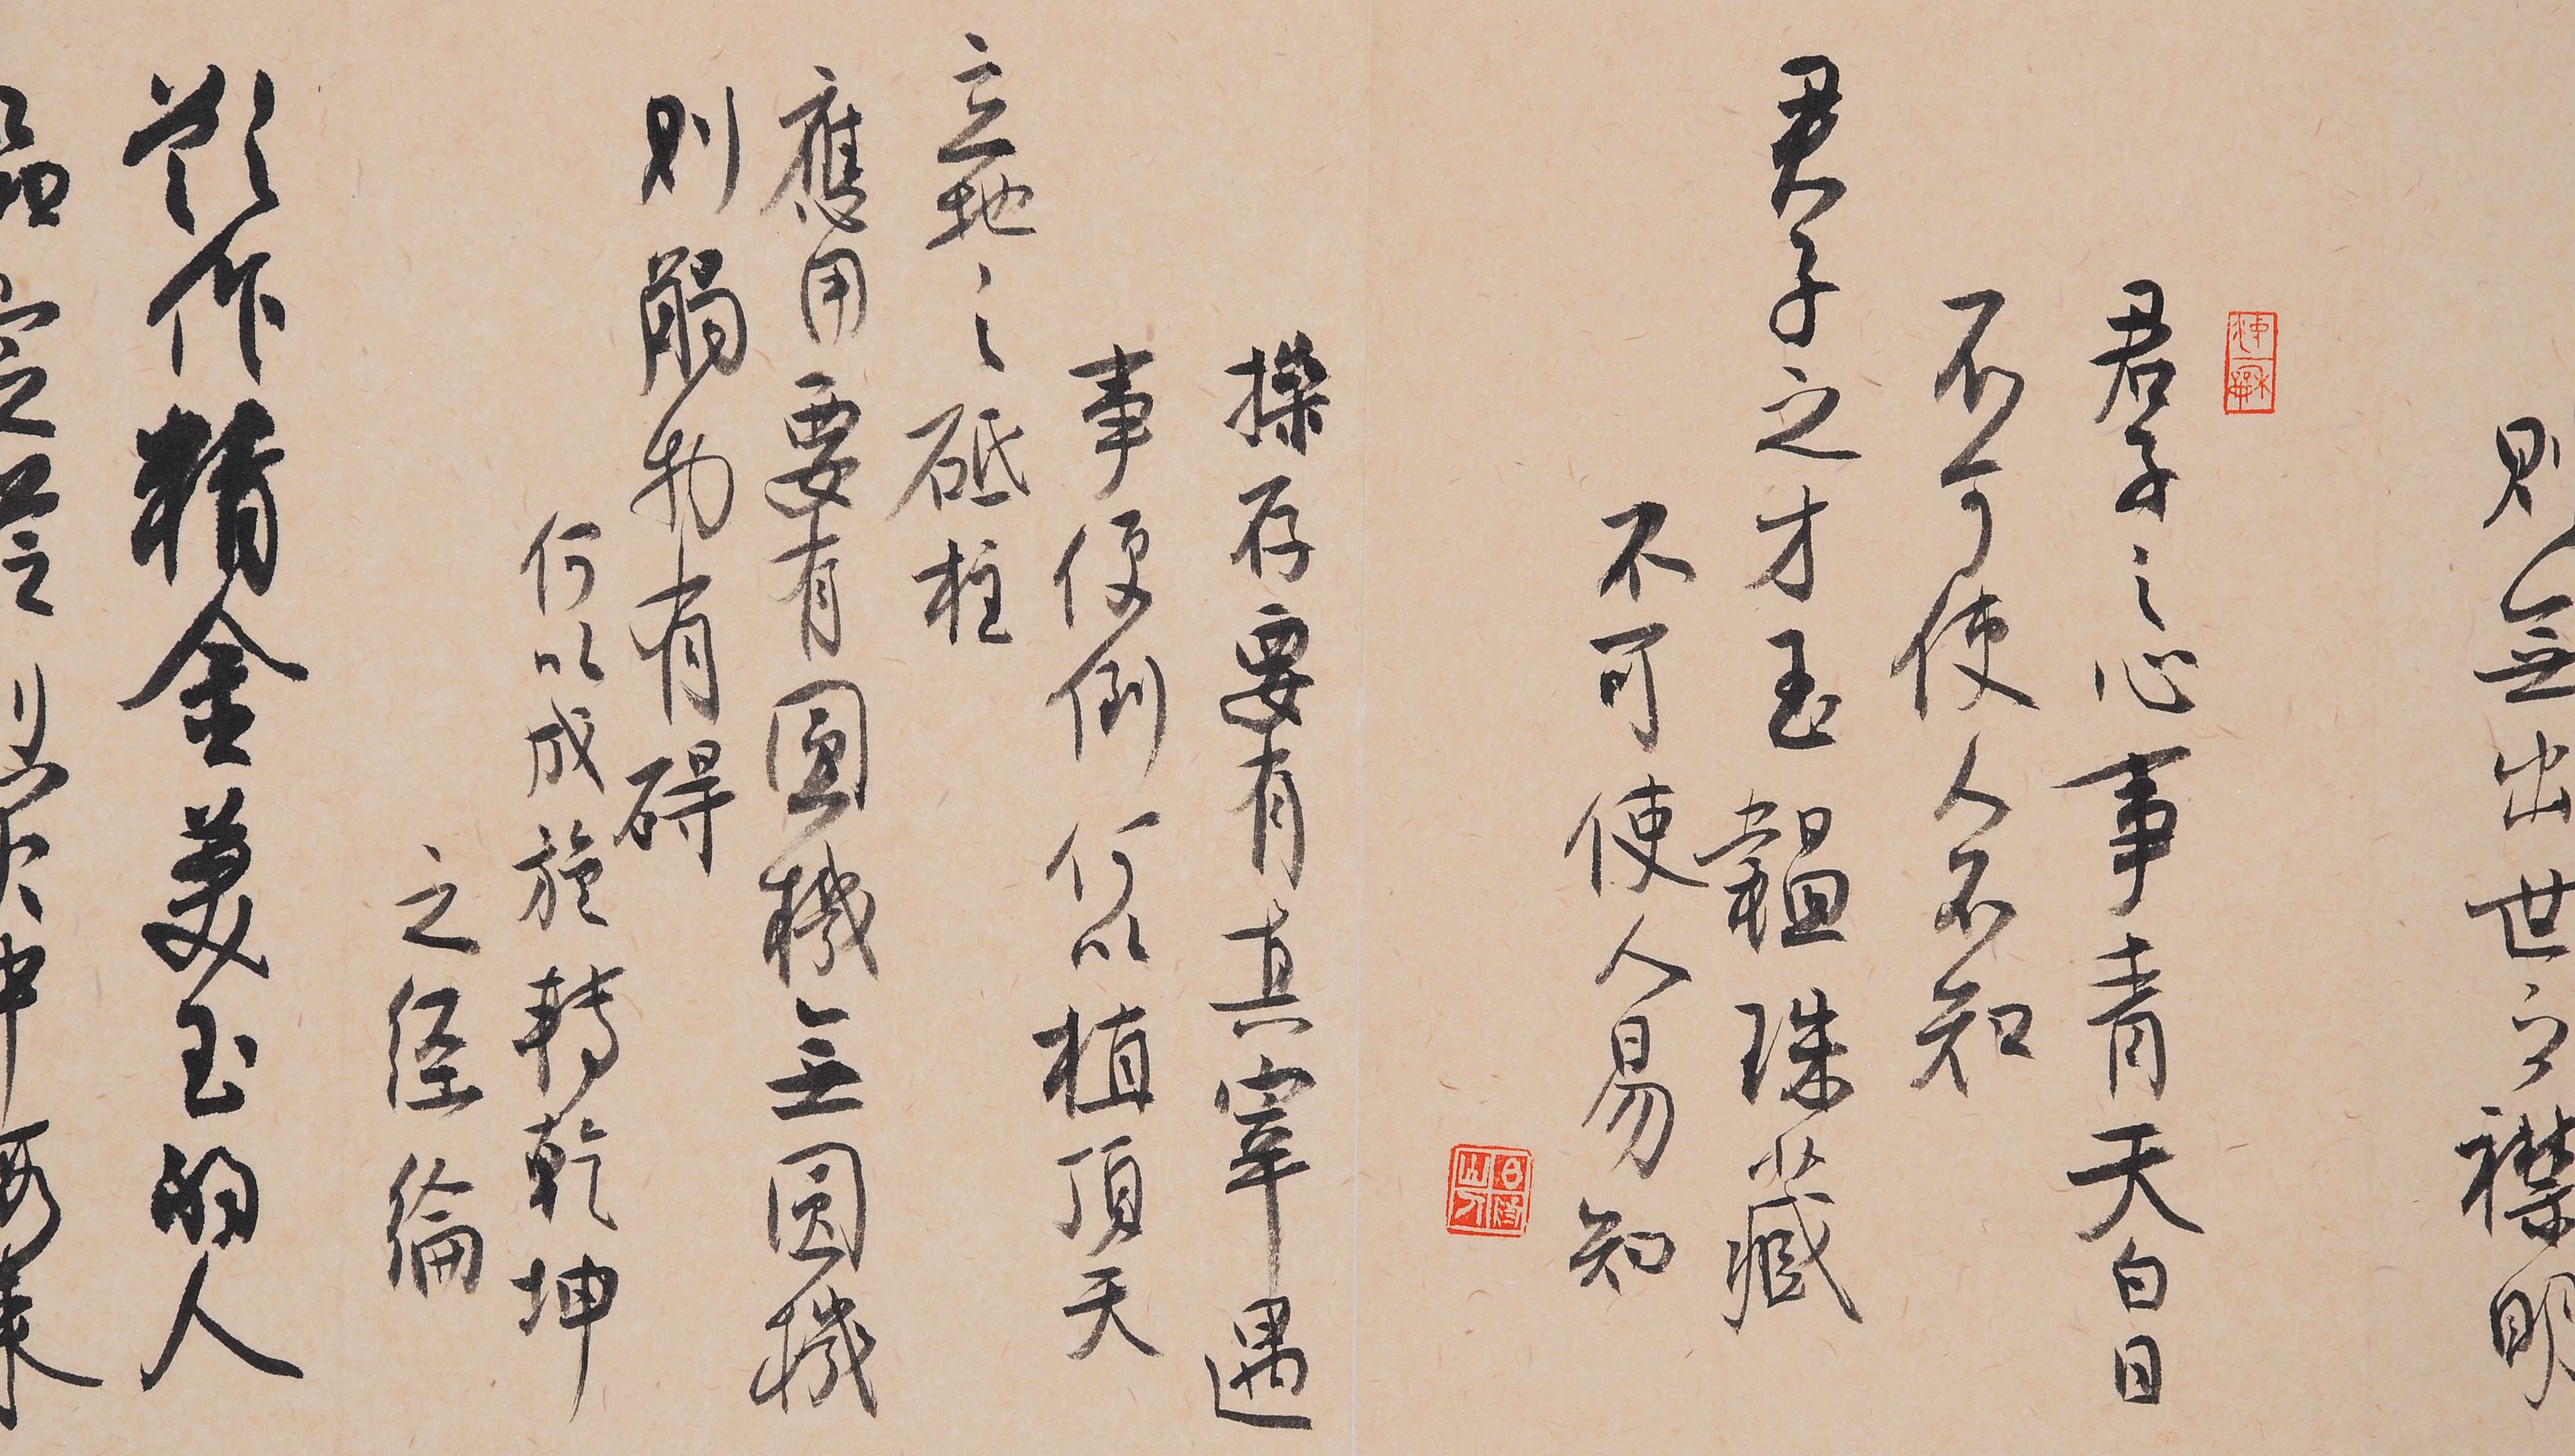 則無出世之襟明
君子之心事青天白日
不可使人不知
君子之才玉韞珠藏
不可使人易知
操存要有真宰遇
事便倒何以植頂天
立地之砥柱
應用要有圓機無圓機
則觸物有碍
何以成旋轉乾坤
之經綸
欲作精金美玉的人
品定從烈火中煅來